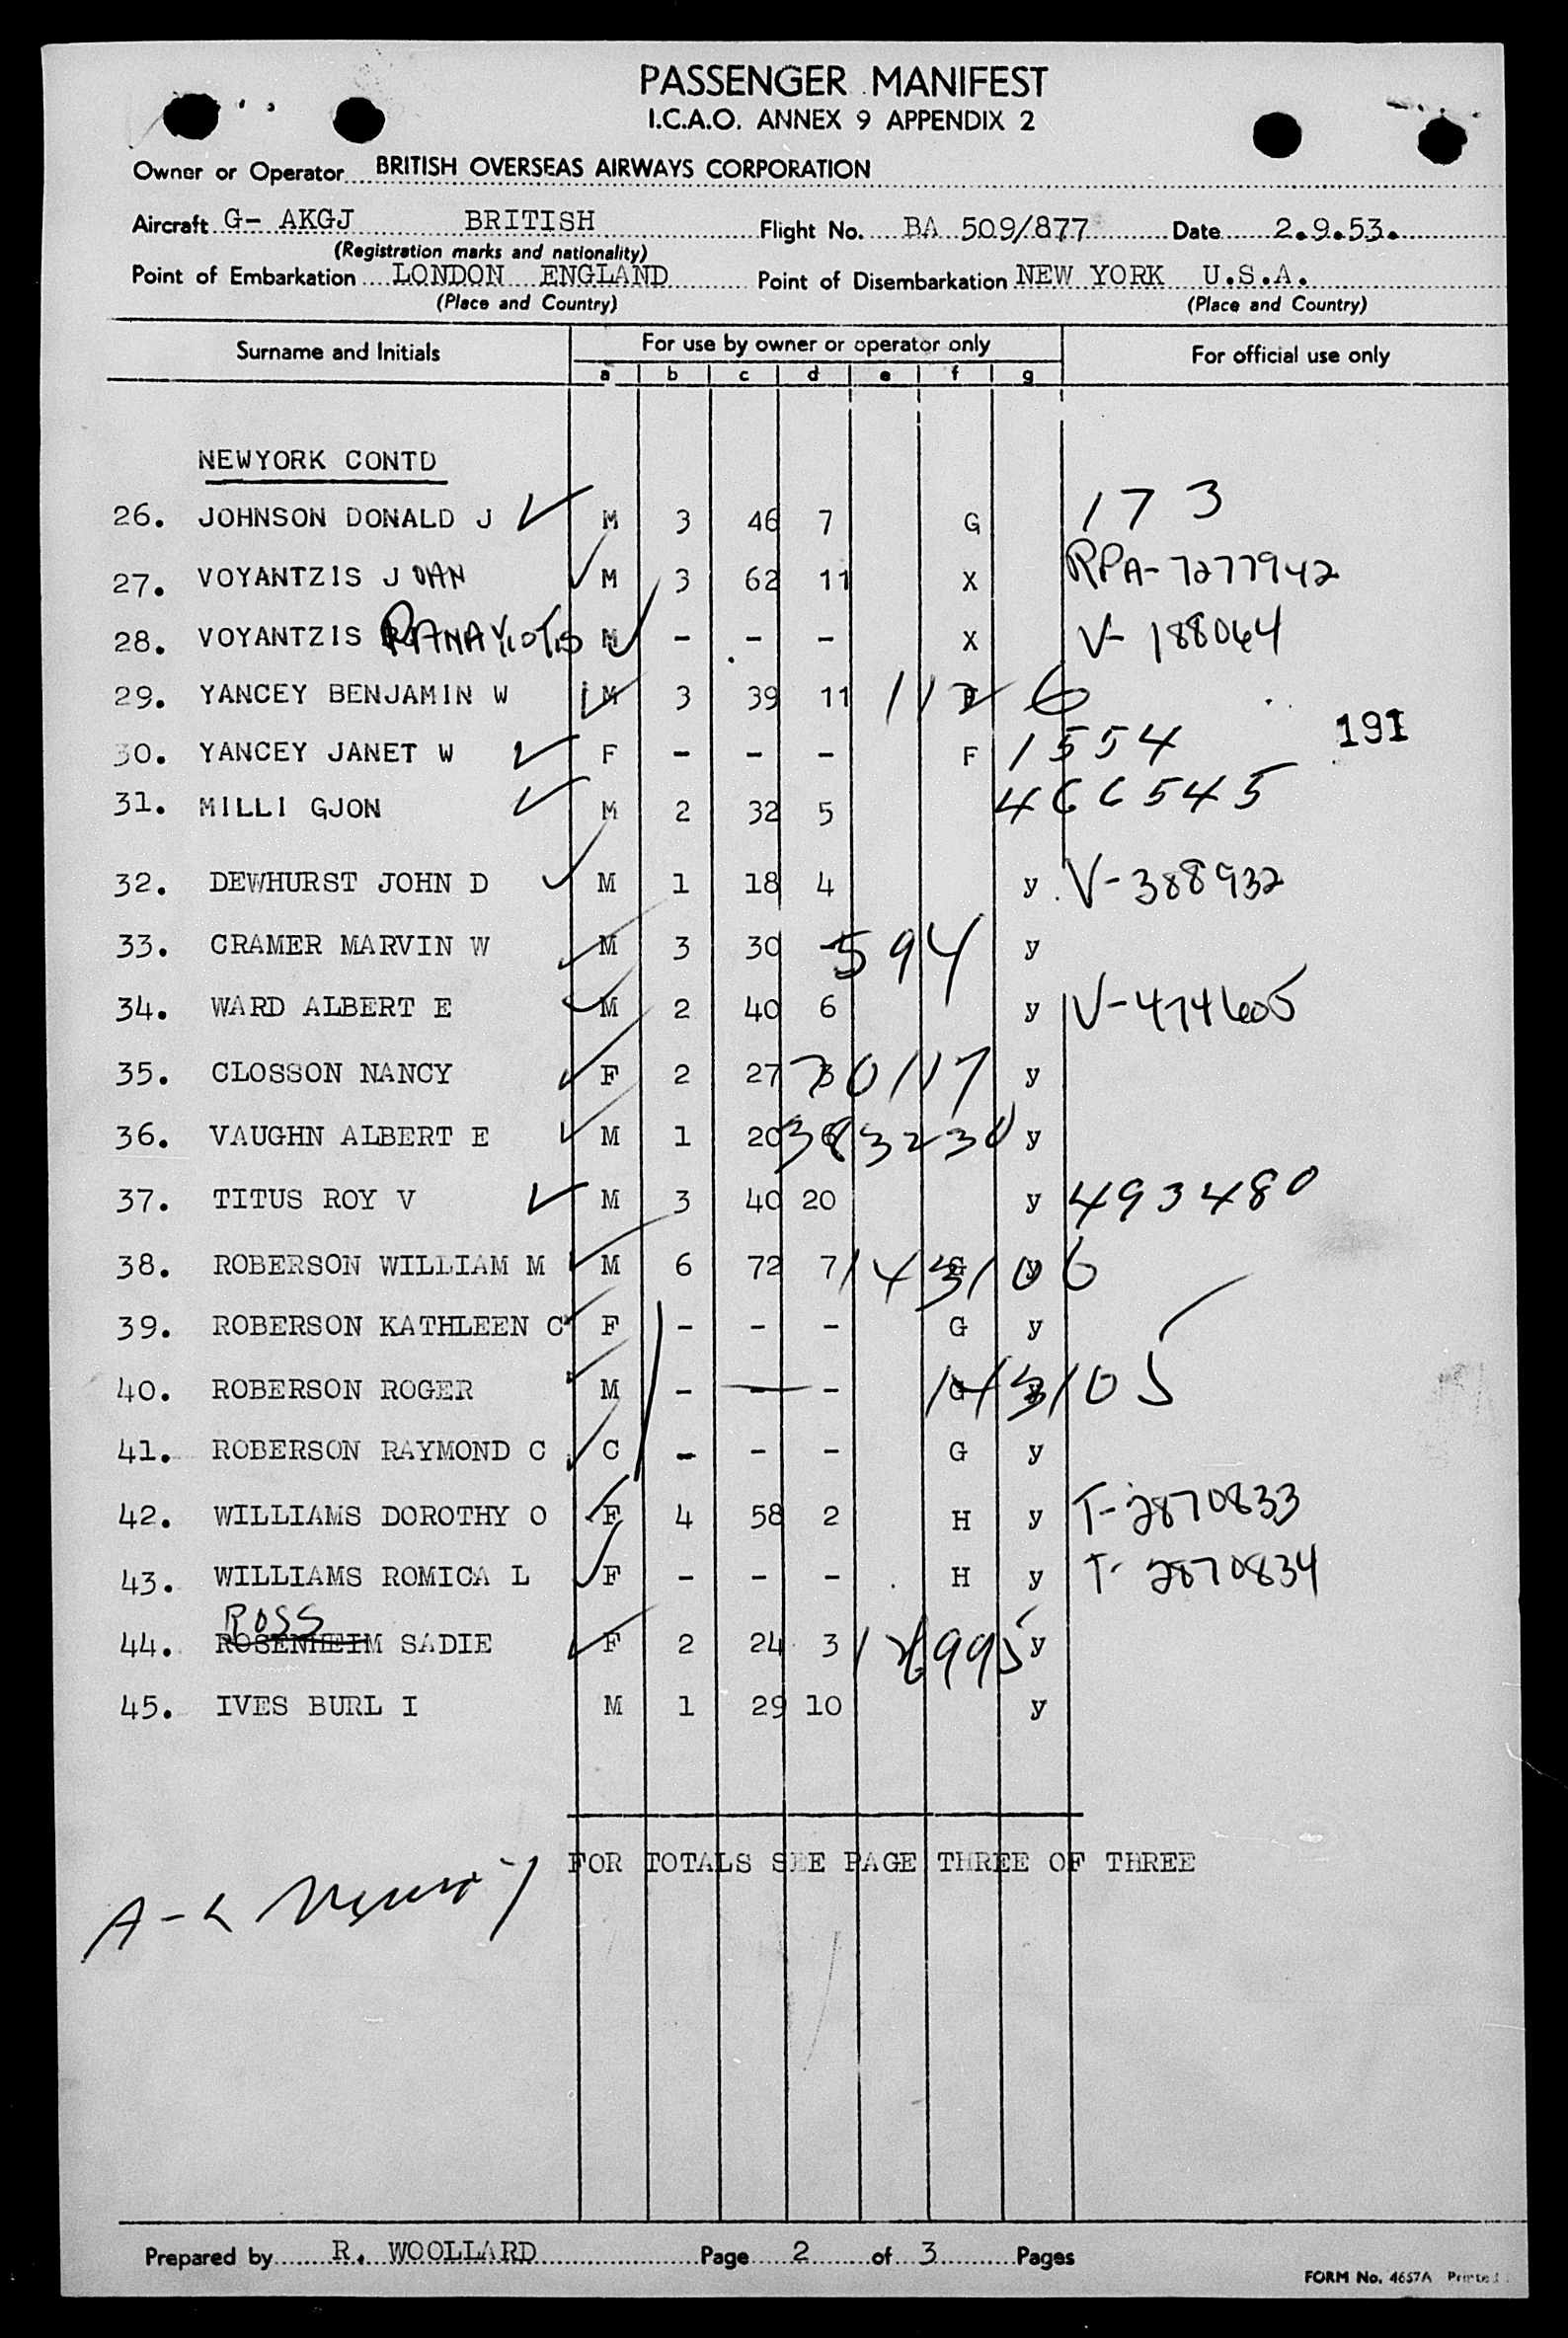 PASSENGER MANIFEST
I.C.A.O. ANNEX 9 APPENDIX 2
Owner or Operator BRITISH OVERSEAS AIRWAYS CORPORATION
Aircraft G- AKGJ BRITISH Flight No. BA 509/877 Date 2.9.53.
(Registration marks and nationality)
Point of Embarkation LONDON ENGLAND Point of Disembarkation NEW YORK U.S.A.
(Place and Country) (Place and Country)
Surname and Initials For use by owner or operator only For official use only
a b c d e f g
NEWYORK CONTD
26. JOHNSON DONALD J M 3 46 7 G 173
27. VOYANTZIS JOAN M 3 62 11 X RPA-7277942
28. VOYANTZIS PANAYIOTIS M - - - X V-188064
29. YANCEY BENJAMIN W M 3 39 11 F 1126
30. YANCEY JANET W F - - - F 1554 191
31. MILLI GJON M 2 32 5 466545
32. DEWHURST JOHN D M 1 18 4 y V-388932
33. CRAMER MARVIN W M 3 30 - 594 y
34. WARD ALBERT E M 2 40 6 y V-474605
35. CLOSSON NANCY F 2 27 3 70117 y
36. VAUGHN ALBERT E M 1 20 6 383230 y
37. TITUS ROY V M 3 40 20 y 493480
38. ROBERSON WILLIAM M M 6 72 7 G y 143106
39. ROBERSON KATHLEEN C F - - - G y
40. ROBERSON ROGER M - - - G y 143105
41. ROBERSON RAYMOND C C - - - G y
42. WILLIAMS DOROTHY O F 4 58 2 H y T-2870833
43. WILLIAMS ROMICA L F - - - H y T-2870834
ROSS
44. ROSENHEIM SADIE F 2 24 3 y
45. IVES BURL I M 1 29 10 y
FOR TOTALS SEE PAGE THREE OF THREE
Prepared by R. WOOLLARD Page 2 of 3 Pages
FORM No. 4657A Printed